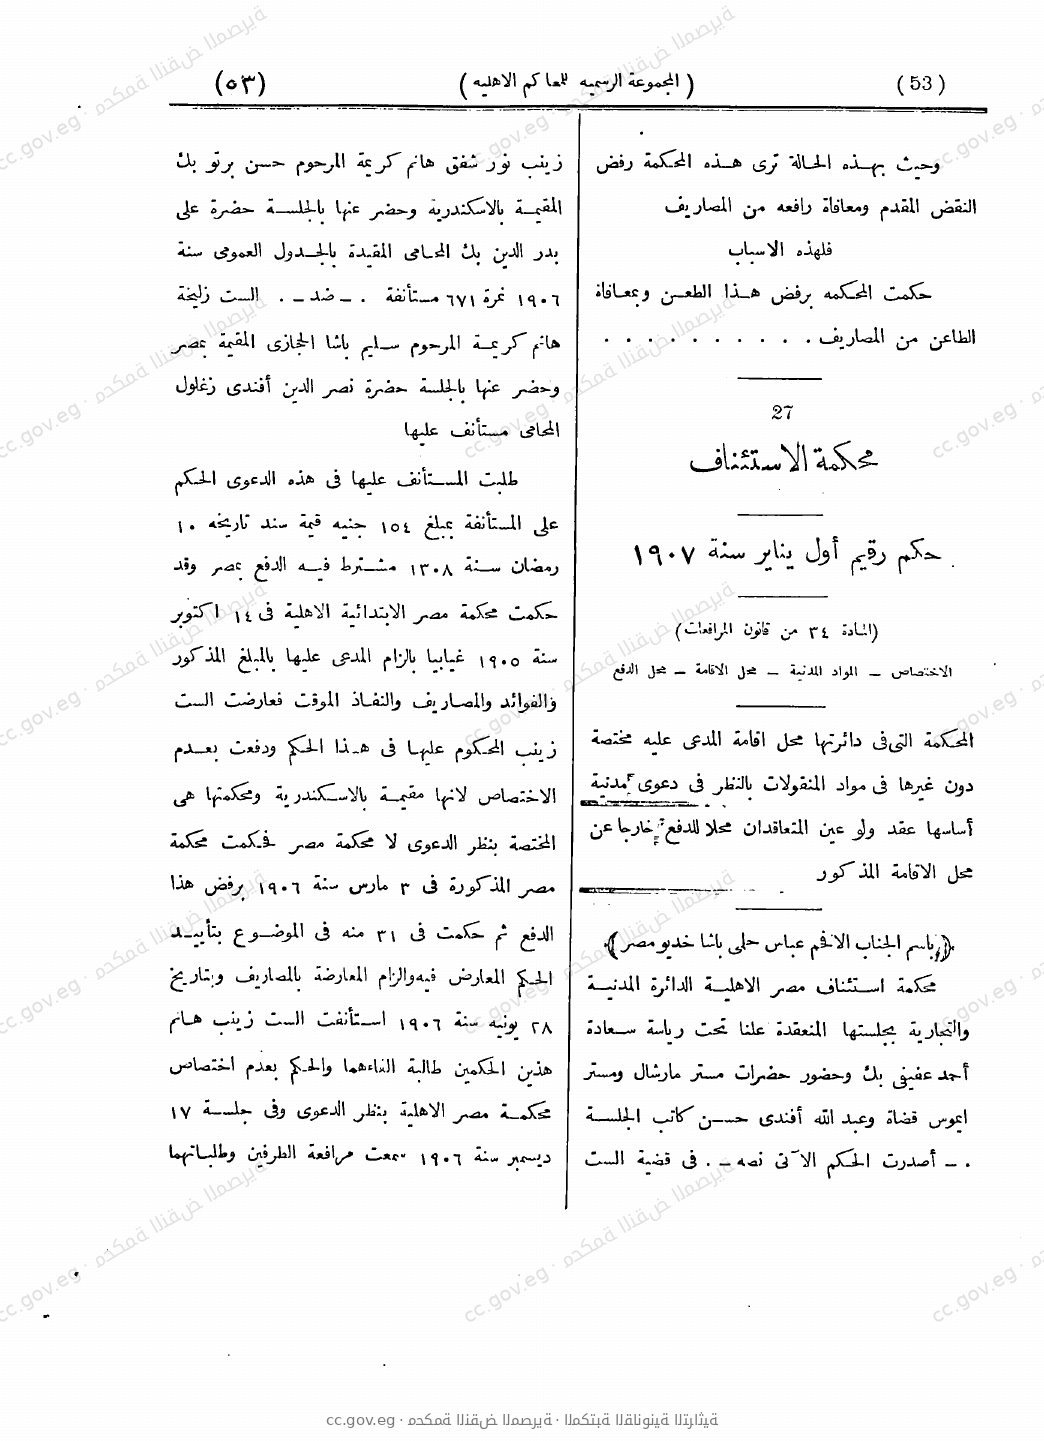 (53) (المجموعة الرسميه للمحاكم الاهليه) (٥٣)
وحيث بهذه الحالة ترى هذه المحكمة رفض
النقض المقدم ومعافاة رافعه من المصاريف
فلهذه الاسباب
حكمت المحكمه برفض هذا الطعن وبمعافاة
الطاعن من المصاريف . . . . . . . . . .
27
محكمة الاستئناف
حكم رقيم أول يناير سنة ١٩٠٧
(المادة ٣٤ من قانون المرافعات)
الاختصاص ــ المواد المدنية ــ محل الاقامة ــ محل الدفع
المحكمة التى فى دائرتها محل اقامة المدعى عليه مختصة
دون غيرها فى مواد المنقولات بالنظر فى دعوى مدنية
أساسها عقد ولو عين المتعاقدان محلا للدفع خارجا عن
محل الاقامة المذكور
(باسم الجناب الافخم عباس حلمى باشا خديو مصر)
محكمة استئناف مصر الاهلية الدائرة المدنية
والتجارية بجلستها المنعقدة علنا تحت رياسة سعادة
أحمد عفيفى بك وحضور حضرات مستر مارشال ومستر
ايموس قضاة وعبد الله أفندى حسن كاتب الجلسة
. ــ أصدرت الحكم الآتى نصه ــ . فى قضية الست
زينب نور شفق هانم كريمة المرحوم حسن برتو بك
المقيمة بالاسكندرية وحضر عنها بالجلسة حضرة على
بدر الدين بك المحامى المقيدة بالجدول العمومى سنة
١٩٠٦ نمرة ٦٧١ مستأنفة . ــ ضد ــ . الست زليخة
هانم كريمة المرحوم سليم باشا الحجازى المقيمة بمصر
وحضر عنها بالجلسة حضرة نصر الدين أفندى زغلول
المحامى مستأنف عليها
طلبت المستأنف عليها فى هذه الدعوى الحكم
على المستأنفة بمبلغ ١٥٤ جنيه قيمة سند تاريخه ١٠
رمضان سنة ١٣٠٨ مشترط فيه الدفع بمصر وقد
حكمت محكمة مصر الابتدائية الاهلية فى ١٤ اكتوبر
سنة ١٩٠٥ غيابيا بالزام المدعى عليها بالمبلغ المذكور
والفوائد والمصاريف والنفاذ الموقت فعارضت الست
زينب المحكوم عليها فى هذا الحكم ودفعت بعدم
الاختصاص لانها مقيمة بالاسكندرية ومحكمتها هى
المختصة بنظر الدعوى لا محكمة مصر فحكمت محكمة
مصر المذكورة فى ٣ مارس سنة ١٩٠٦ برفض هذا
الدفع ثم حكمت فى ٣١ منه فى الموضوع بتأييد
الحكم المعارض فيه والزام المعارضة بالمصاريف وبتاريخ
٢٨ يونيه سنة ١٩٠٦ استأنفت الست زينب هانم
هذين الحكمين طالبة الغاءهما والحكم بعدم اختصاص
محكمة مصر الاهلية بنظر الدعوى وفى جلسة ١٧
ديسمبر سنة ١٩٠٦ سمعت مرافعة الطرفين وطلباتهما
cc.gov.eg · محكمة النقض المصرية · المكتبة القانونية التراثية